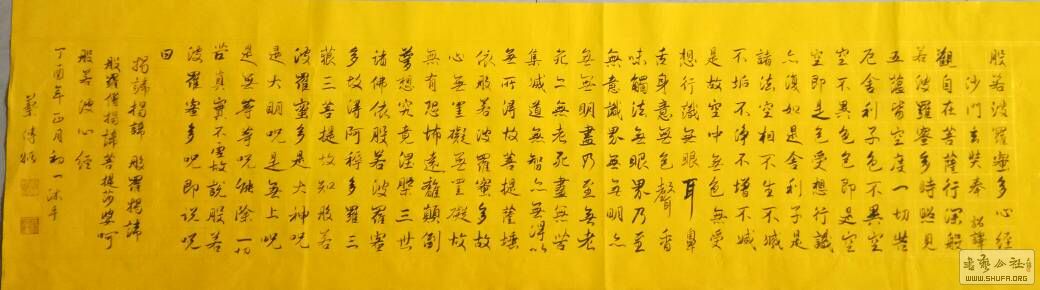 般若波羅蜜多心經
沙門玄奘奉 詔譯
觀自在菩薩行深般
若波羅蜜多時照見
五蘊皆空度一切苦
厄舍利子色不異空
空不異色色即是空
空即是色受想行識
亦復如是舍利子是
諸法空相不生不滅
不垢不淨不增不減
是故空中無色無受
想行識無眼耳鼻
舌身意無色聲香
味觸法無眼界乃至
無意識界無無明亦
無無明盡乃至無老
死亦無老死盡無苦
集滅道無智亦無得以
無所得故菩提薩埵
依般若波羅蜜多故
心無罣礙無罣礙故
無有恐怖遠離顛倒
夢想究竟涅槃三世
諸佛依般若波羅蜜
多故得阿耨多羅三
藐三菩提故知般若
波羅蜜多是大神咒
是大明咒是無上咒
是無等等咒能除一切
苦真實不虛故說般若
波羅蜜多咒即說咒
曰
揭諦揭諦 般羅揭諦
般羅僧揭諦菩提娑婆呵
般若波心經
丁酉年正月初一沐手
傳
书艺公社
WWW.SHUFA.ORG